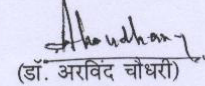 (डॉ. अरविंद चौधरी)